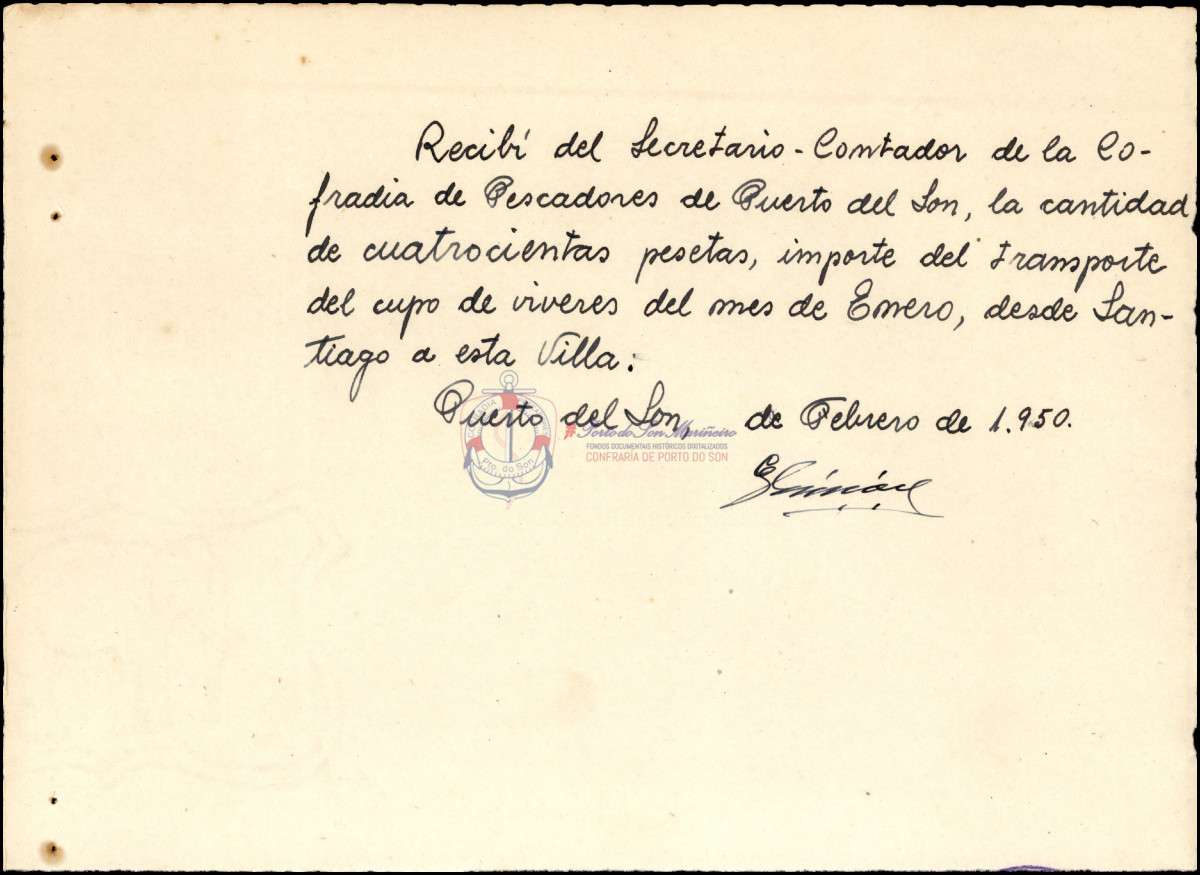 Recibí del Secretario-Contador de la Co-
fradia de Pescadores de Puerto del Son, la cantidad
de cuatrocientas pesetas, importe del transporte
del cupo de viveres del mes de Enero, desde San-
tiago a esta Villa.
Puerto del Son, de Febrero de 1.950.
#Porto do Son Mariñeiro
FONDOS DOCUMENTAIS HISTÓRICOS DIXITALIZADOS
CONFRARÍA DE PORTO DO SON
Pto. do Son